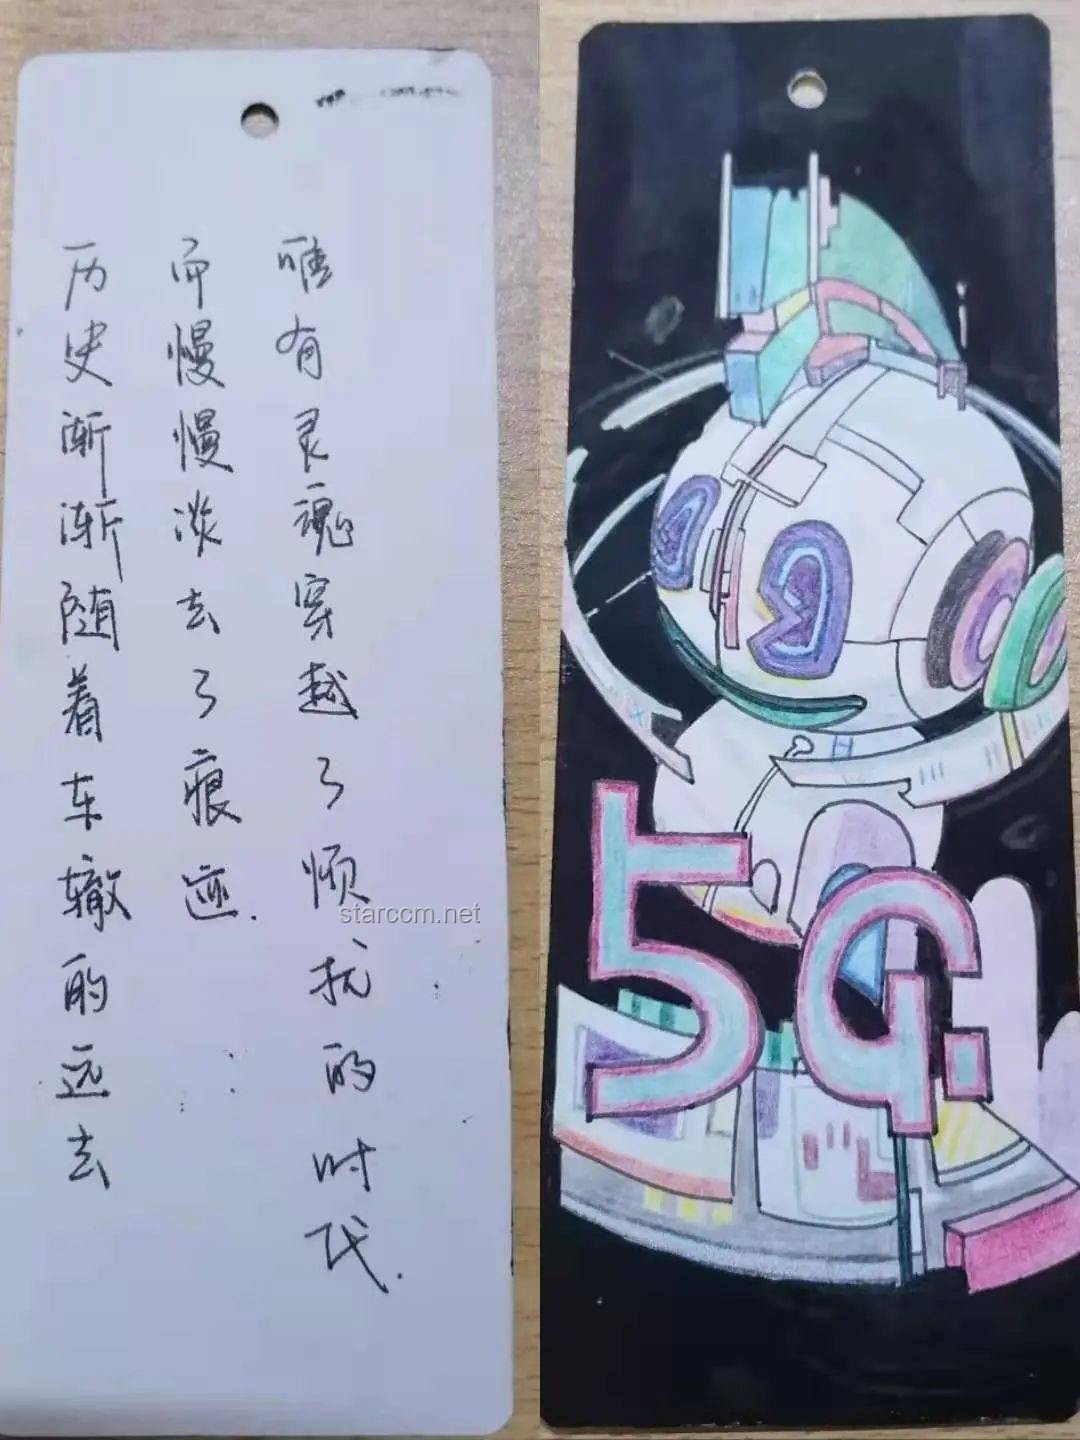 历史渐渐随着车辙的远去
而慢慢淡去了痕迹.
唯有灵魂穿越了烦扰的时代.
starccm.net
5G